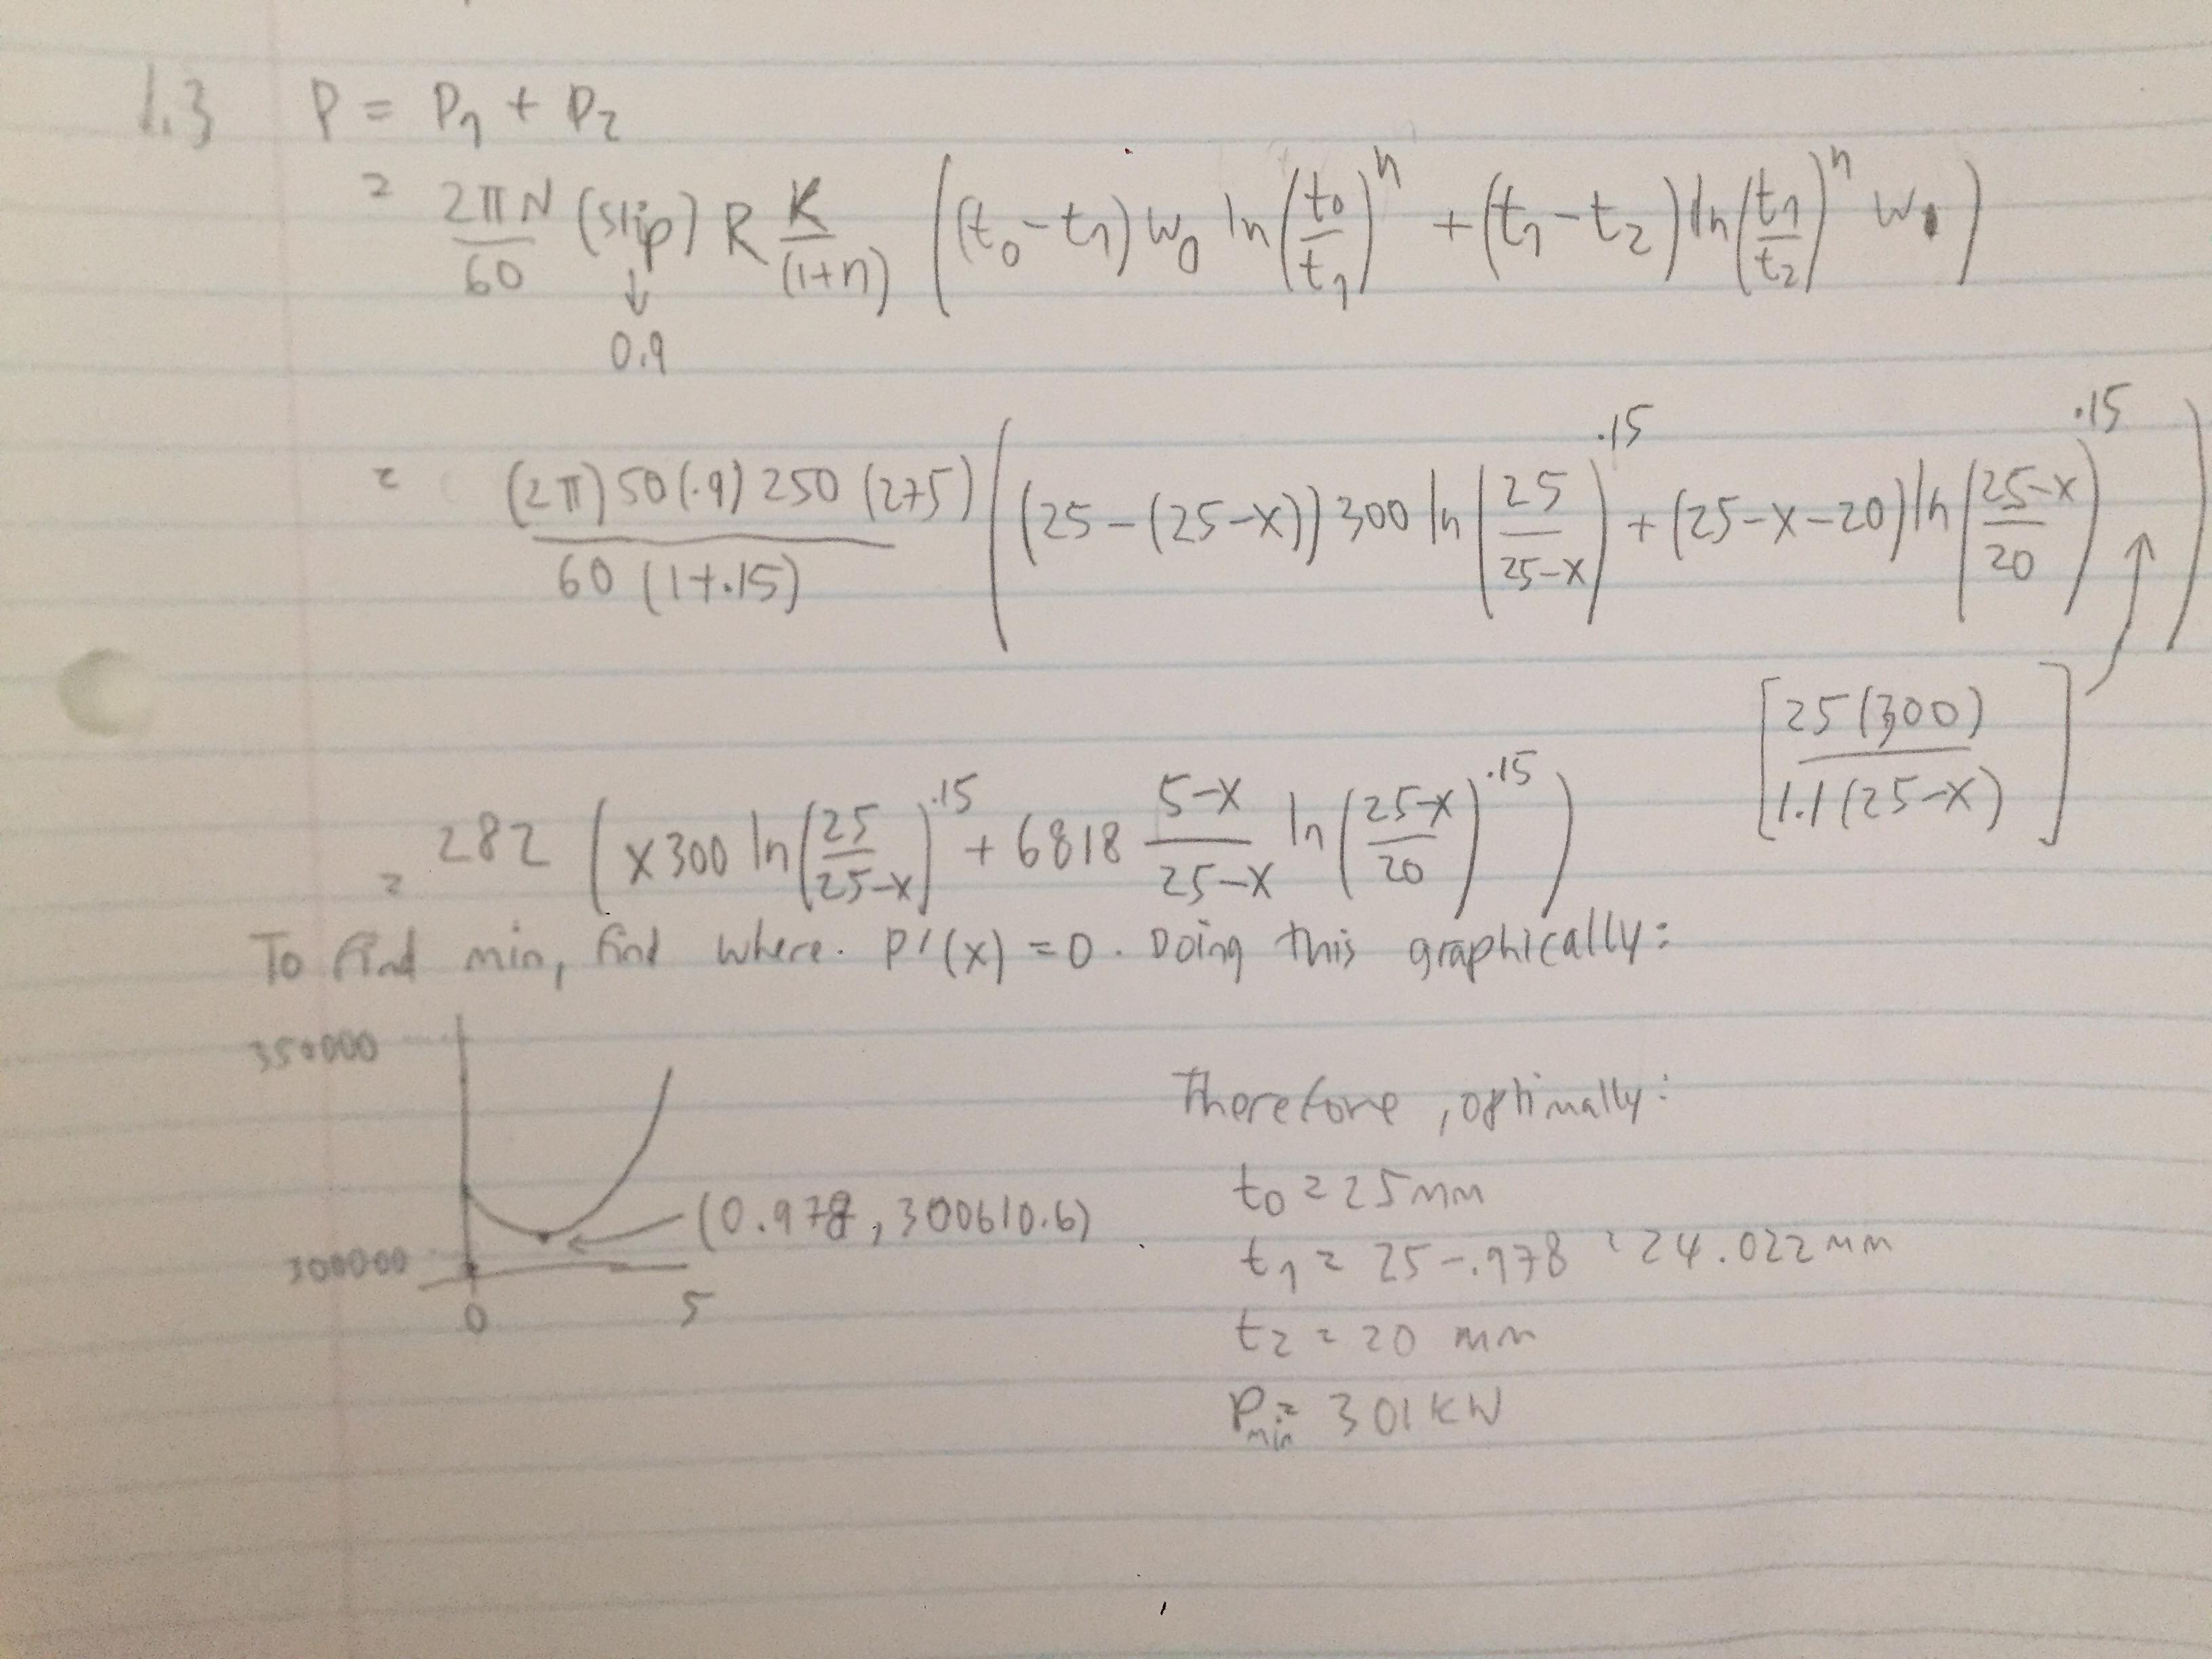 1.3 P = P₁ + P₂
= 2πN/60 (slip) R K/(1+n) ((t₀-t₁) w₀ ln(t₀/t₁)ⁿ + (t₁-t₂) ln(t₁/t₂)ⁿ w₁)
↓
0.9
= (2π)50(.9)250(275)/60(1+.15) ((25-(25-x))300 ln(25/25-x)^.15 + (25-x-20) ln(25-x/20)^.15)
[25(300)/1.1(25-x)]
= 282 (x300 ln(25/25-x)^.15 + 6818 5-x/25-x ln(25-x/20)^.15)
To find min, find where. P'(x) = 0. Doing this graphically:
350000
Therefore, optimally:
t₀ = 25mm
(0.978, 300610.6)
t₁ = 25-.978 = 24.022mm
300000
0 5
t₂ = 20 mm
Pmin = 301 KW